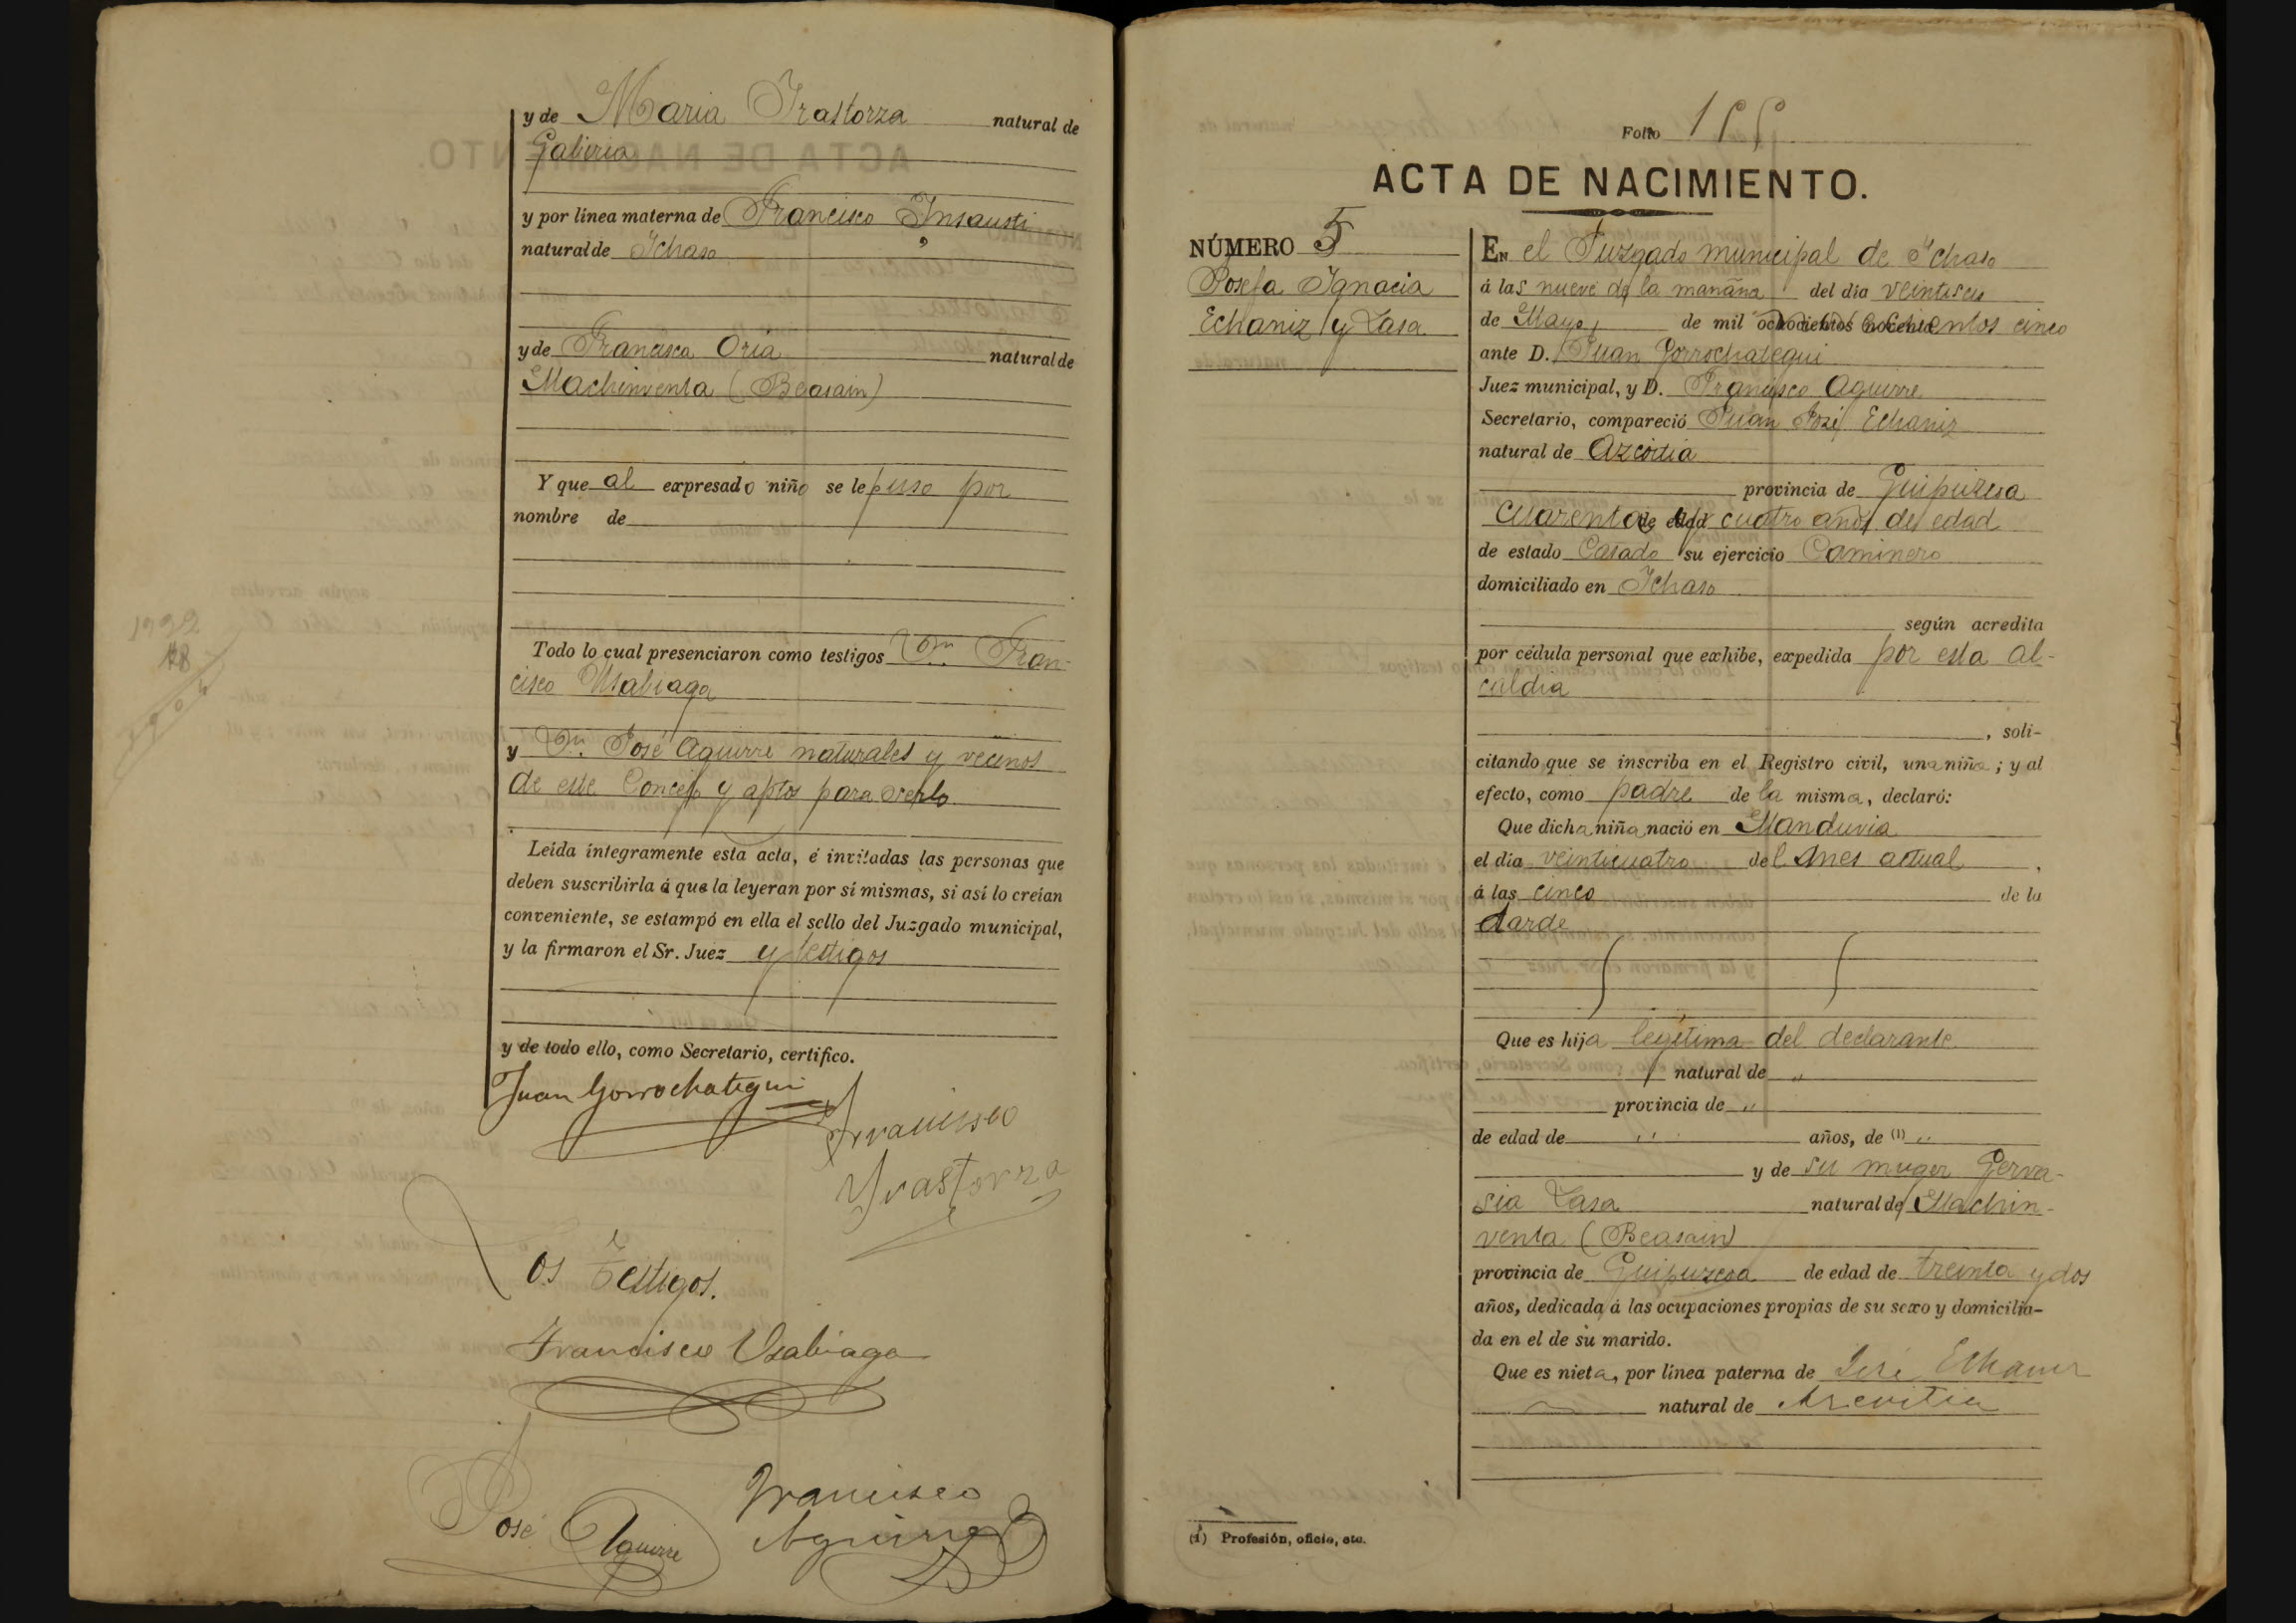 y de Maria Irastorza natural de
Gabiria
y por línea materna de Francisco Insausti
natural de Ichaso
y de Francisca Oria natural de
Machinventa (Beasain)
Y que al expresado niño se le puso por
nombre de
Todo lo cual presenciaron como testigos Dn. Fran-
cisco Usabiaga
y Dn. José Aguirre naturales y vecinos
de este Concejo y aptos para serlo
Leída íntegramente esta acta, é invitadas las personas que
deben suscribirla á que la leyeran por sí mismas, si así lo creían
conveniente, se estampó en ella el sello del Juzgado municipal,
y la firmaron el Sr. Juez y testigos
y de todo ello, como Secretario, certifico.
Juan Gorrochategui
Francisco
Irastorza
Los Testigos.
Francisco Usabiaga
José Aguirre
Francisco
Aguirre
Folio 155
ACTA DE NACIMIENTO.
NÚMERO 5
Josefa Ignacia
Echaniz y Lasa
EN el Juzgado municipal de Ichaso
á las nueve de la mañana del día veintiseis
de Mayo, de mil ochocientos noventa novecientos cinco
ante D. Juan Gorrochategui
Juez municipal, y D. Francisco Aguirre
Secretario, compareció Juan José Echaniz
natural de Azcoitia
provincia de Guipuzcoa
de edad cuarenta y cuatro años de edad
de estado Casado su ejercicio Caminero
domiciliado en Ichaso
según acredita
por cédula personal que exhibe, expedida por esta al-
caldia
, soli-
citando que se inscriba en el Registro civil, una niña; y al
efecto, como padre de la misma, declaró:
Que dicha niña nació en Manduvia
el día veinticuatro del mes actual,
á las cinco de la
tarde
Que es hija legítima del declarante
natural de "
provincia de "
de edad de " años, de (1) "
y de su muger Gerva-
sia Lasa natural de Machin-
venta (Beasain)
provincia de Guipuzcoa de edad de treinta y dos
años, dedicada á las ocupaciones propias de su sexo y domicilia-
da en el de su marido.
Que es nieta, por línea paterna de José Echaniz
natural de Azcoitia
(1) Profesión, oficio, etc.